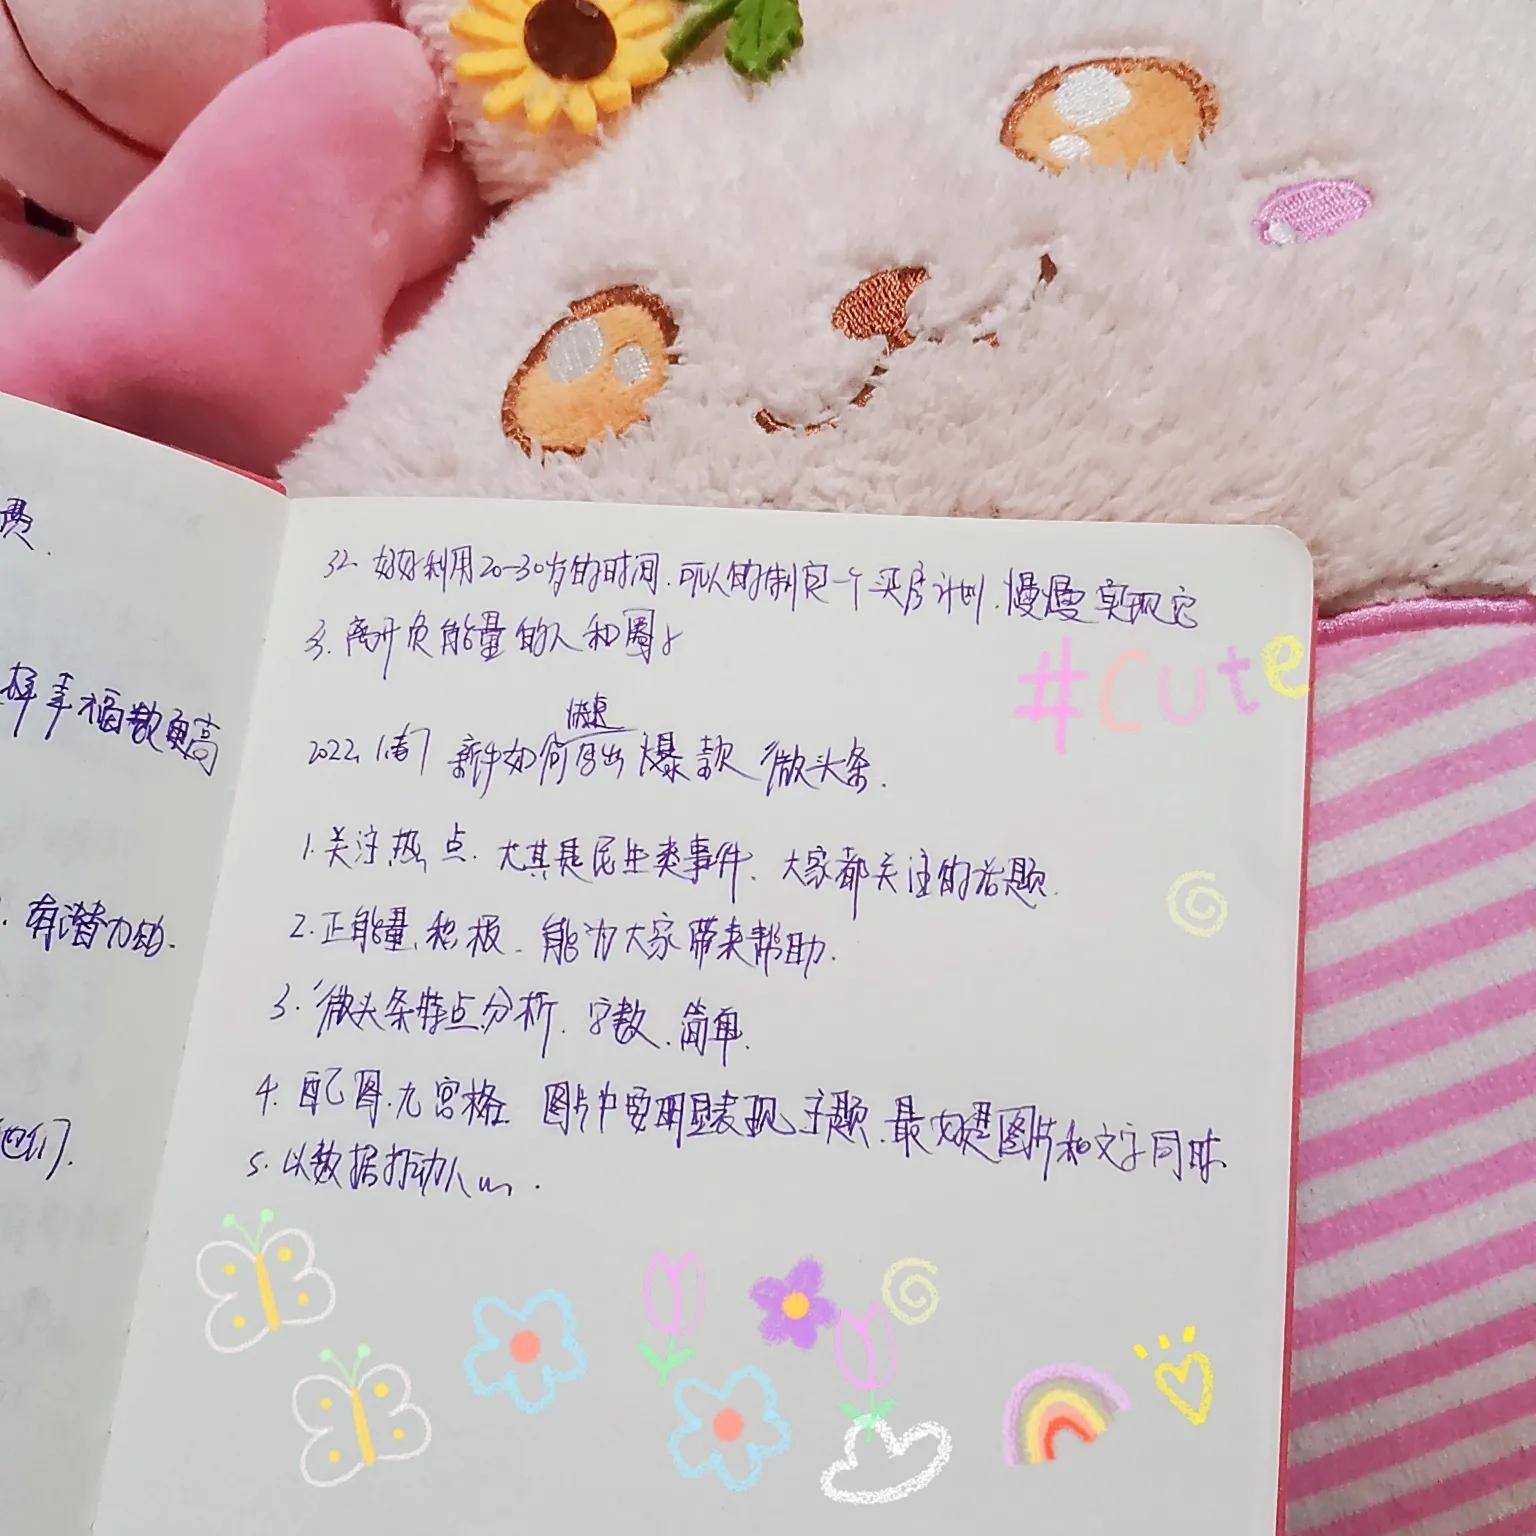 费.
择幸福敬更高
有潜力的.
他们.
32. 好好利用20-30岁的时间.可以的制定一个买房计划.慢慢实现它
3. 离开负能量的人和圈子
#cute
快速
2022. 1 新手如何写出爆款微头条.
1.关注热点.尤其是民生类事件、大家都关注的话题.
2.正能量,积极.能为大家带来帮助.
3.微头条特点分析.字数.简单.
4.配图.九宫格 图片中要明显表现主题.最好是图片和文字同时
5.以数据打动人心.